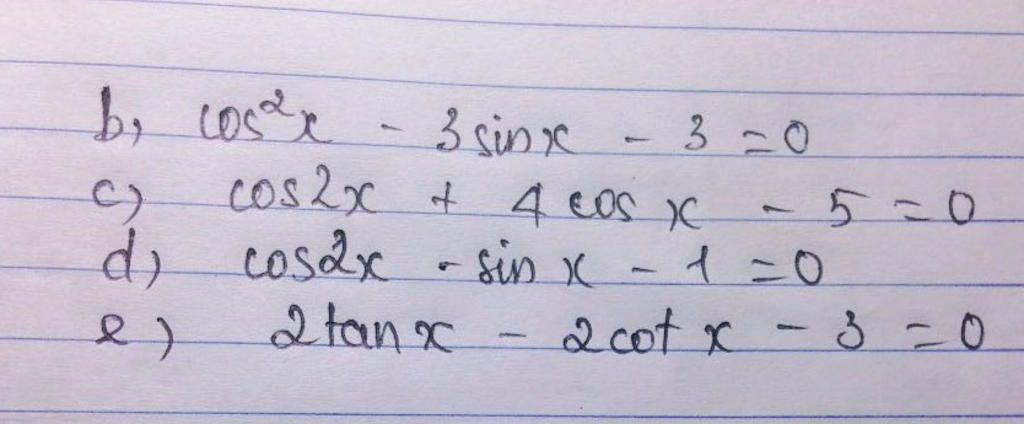 b, cos²x - 3 sinx - 3 = 0
c) cos2x + 4 cos x - 5 = 0
d) cos2x - sin x - 1 = 0
e) 2 tan x - 2 cot x - 3 = 0